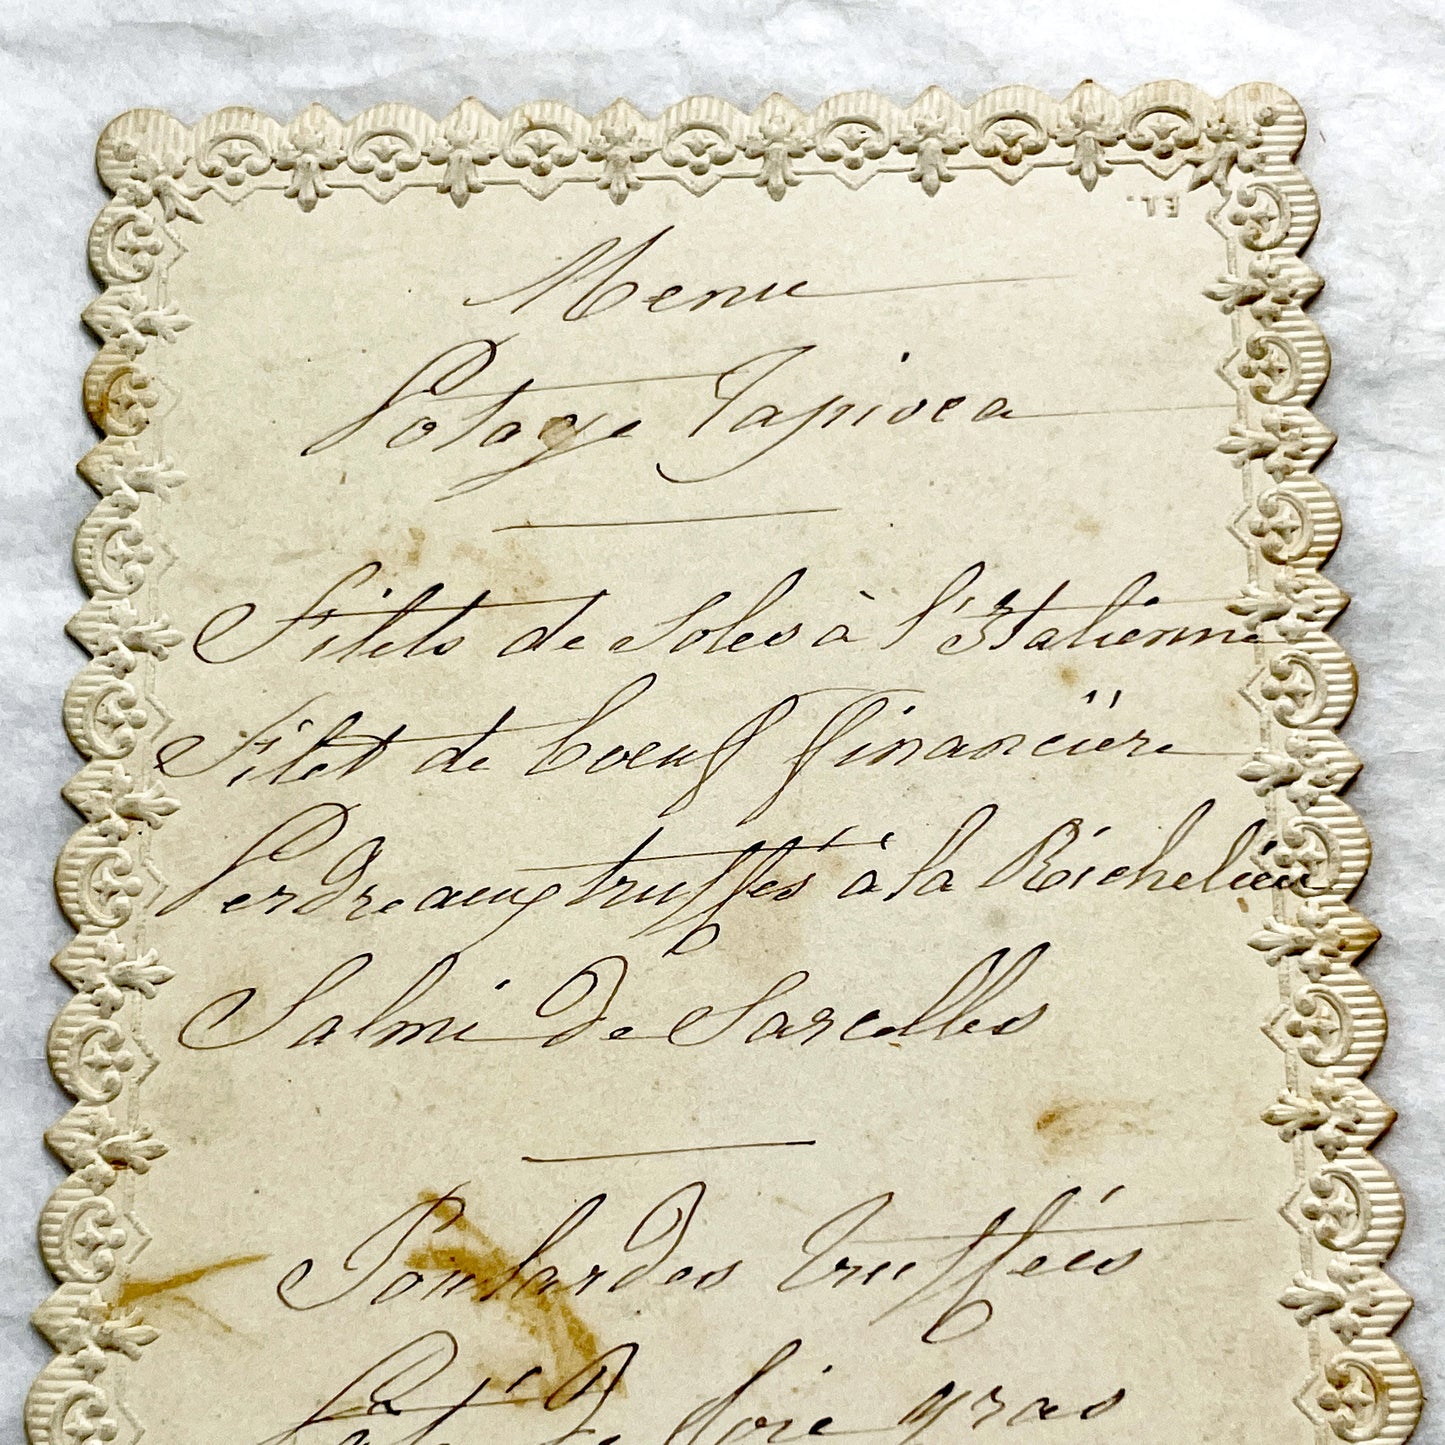 EL.
Menu
Potage Tapioca
Filets de Soles à l'Italienne
Filet de boeuf financière
Perdreaux truffés à la Richelieu
Salmi de Sarcelles
Poulardes truffées
Paté de foie gras